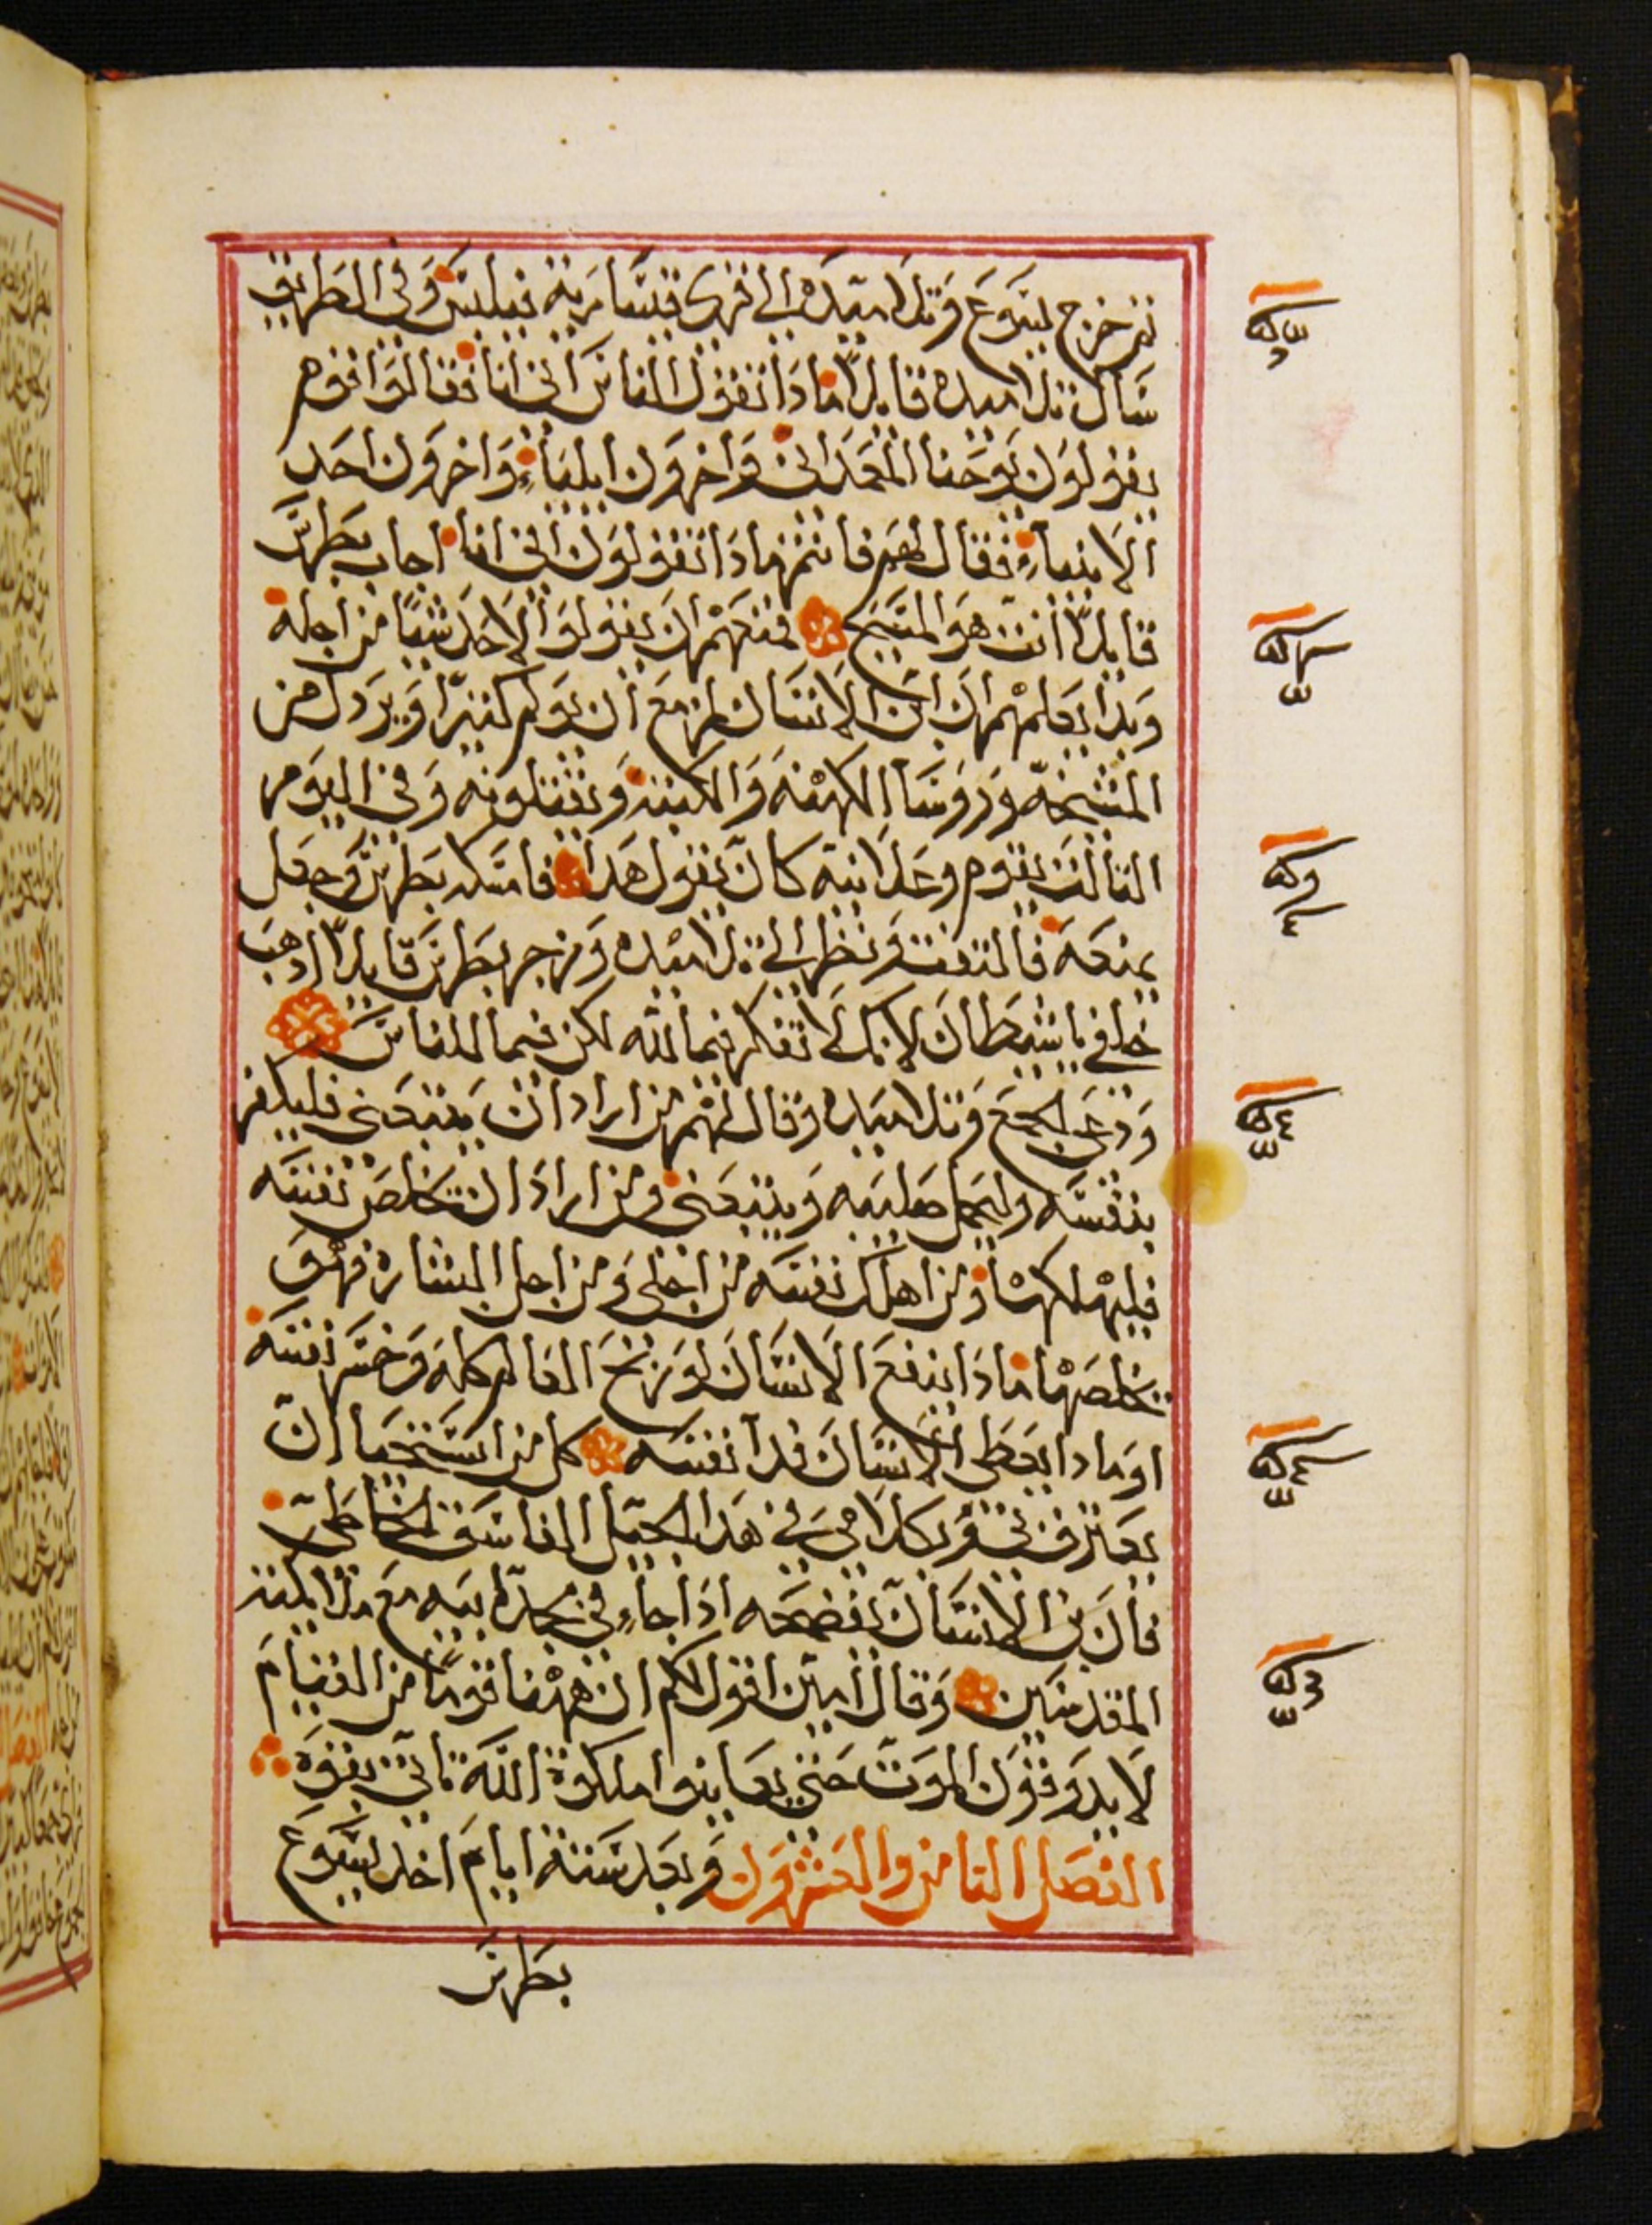 ثم خرج يسوع وتلاميده الي قري قيسارية فيلبس وفي الطريق
سأل تلاميده قايلاً مادا تقول الناس اني انا فقالوا قوم
يقولون يوحنا المعمداني واخرون ايلياء واخرون احد
الانبياء فقال لهم فانتم مادا تقولون اني انا اجاب بطرس
قايلاً أنت هو المسيح فنهرهم ان يقولوا لاحد شياً من اجله
وبدا يعلمهم ان ابن الانسان مزمع أن يولم كثيراً ويردل من
المشيخة وروسا الكهنة والكتبة ويقتلونه وفي اليوم
التالت يقوم وعلانية كان يقول هدا فامسكه بطرس وجعل
يمنعه فالتفت ونظر الي تلاميده وزجر بطرس قايلاً ادهب
خلفي يا شيطان لانك لا تفكر فيما لله لكن فيما للناس
ودعى الجمع وتلاميده وقال لهم من اراد ان يتبعني فليكفر
بنفسه وليحمل صليبه ويتبعني ومن اراد ان يخلص نفسه
فليهلكها ومن اهلك نفسه من اجلي ومن اجل البشارة فهو
يخلصها مادا ينفع الانسان لو ربح العالم كله وخسر نفسه
او مادا يعطي الانسان فدا نفسه كل من استحيا ان
يعترف بي وبكلامي في هدا الجيل الفاسق الخاطي
فان بن الانسان يفضحه ادا جاء في مجد ابيه مع ملايكته
المقدسين وقال امين اقول لكم ان ههنا قوماً من القيام
لا يدوقون الموت حتى يعاينوا ملكوة الله تاتي بقوة
الفصل التامن والعشرون وبعد ستة ايام اخد يسوع
بطرس